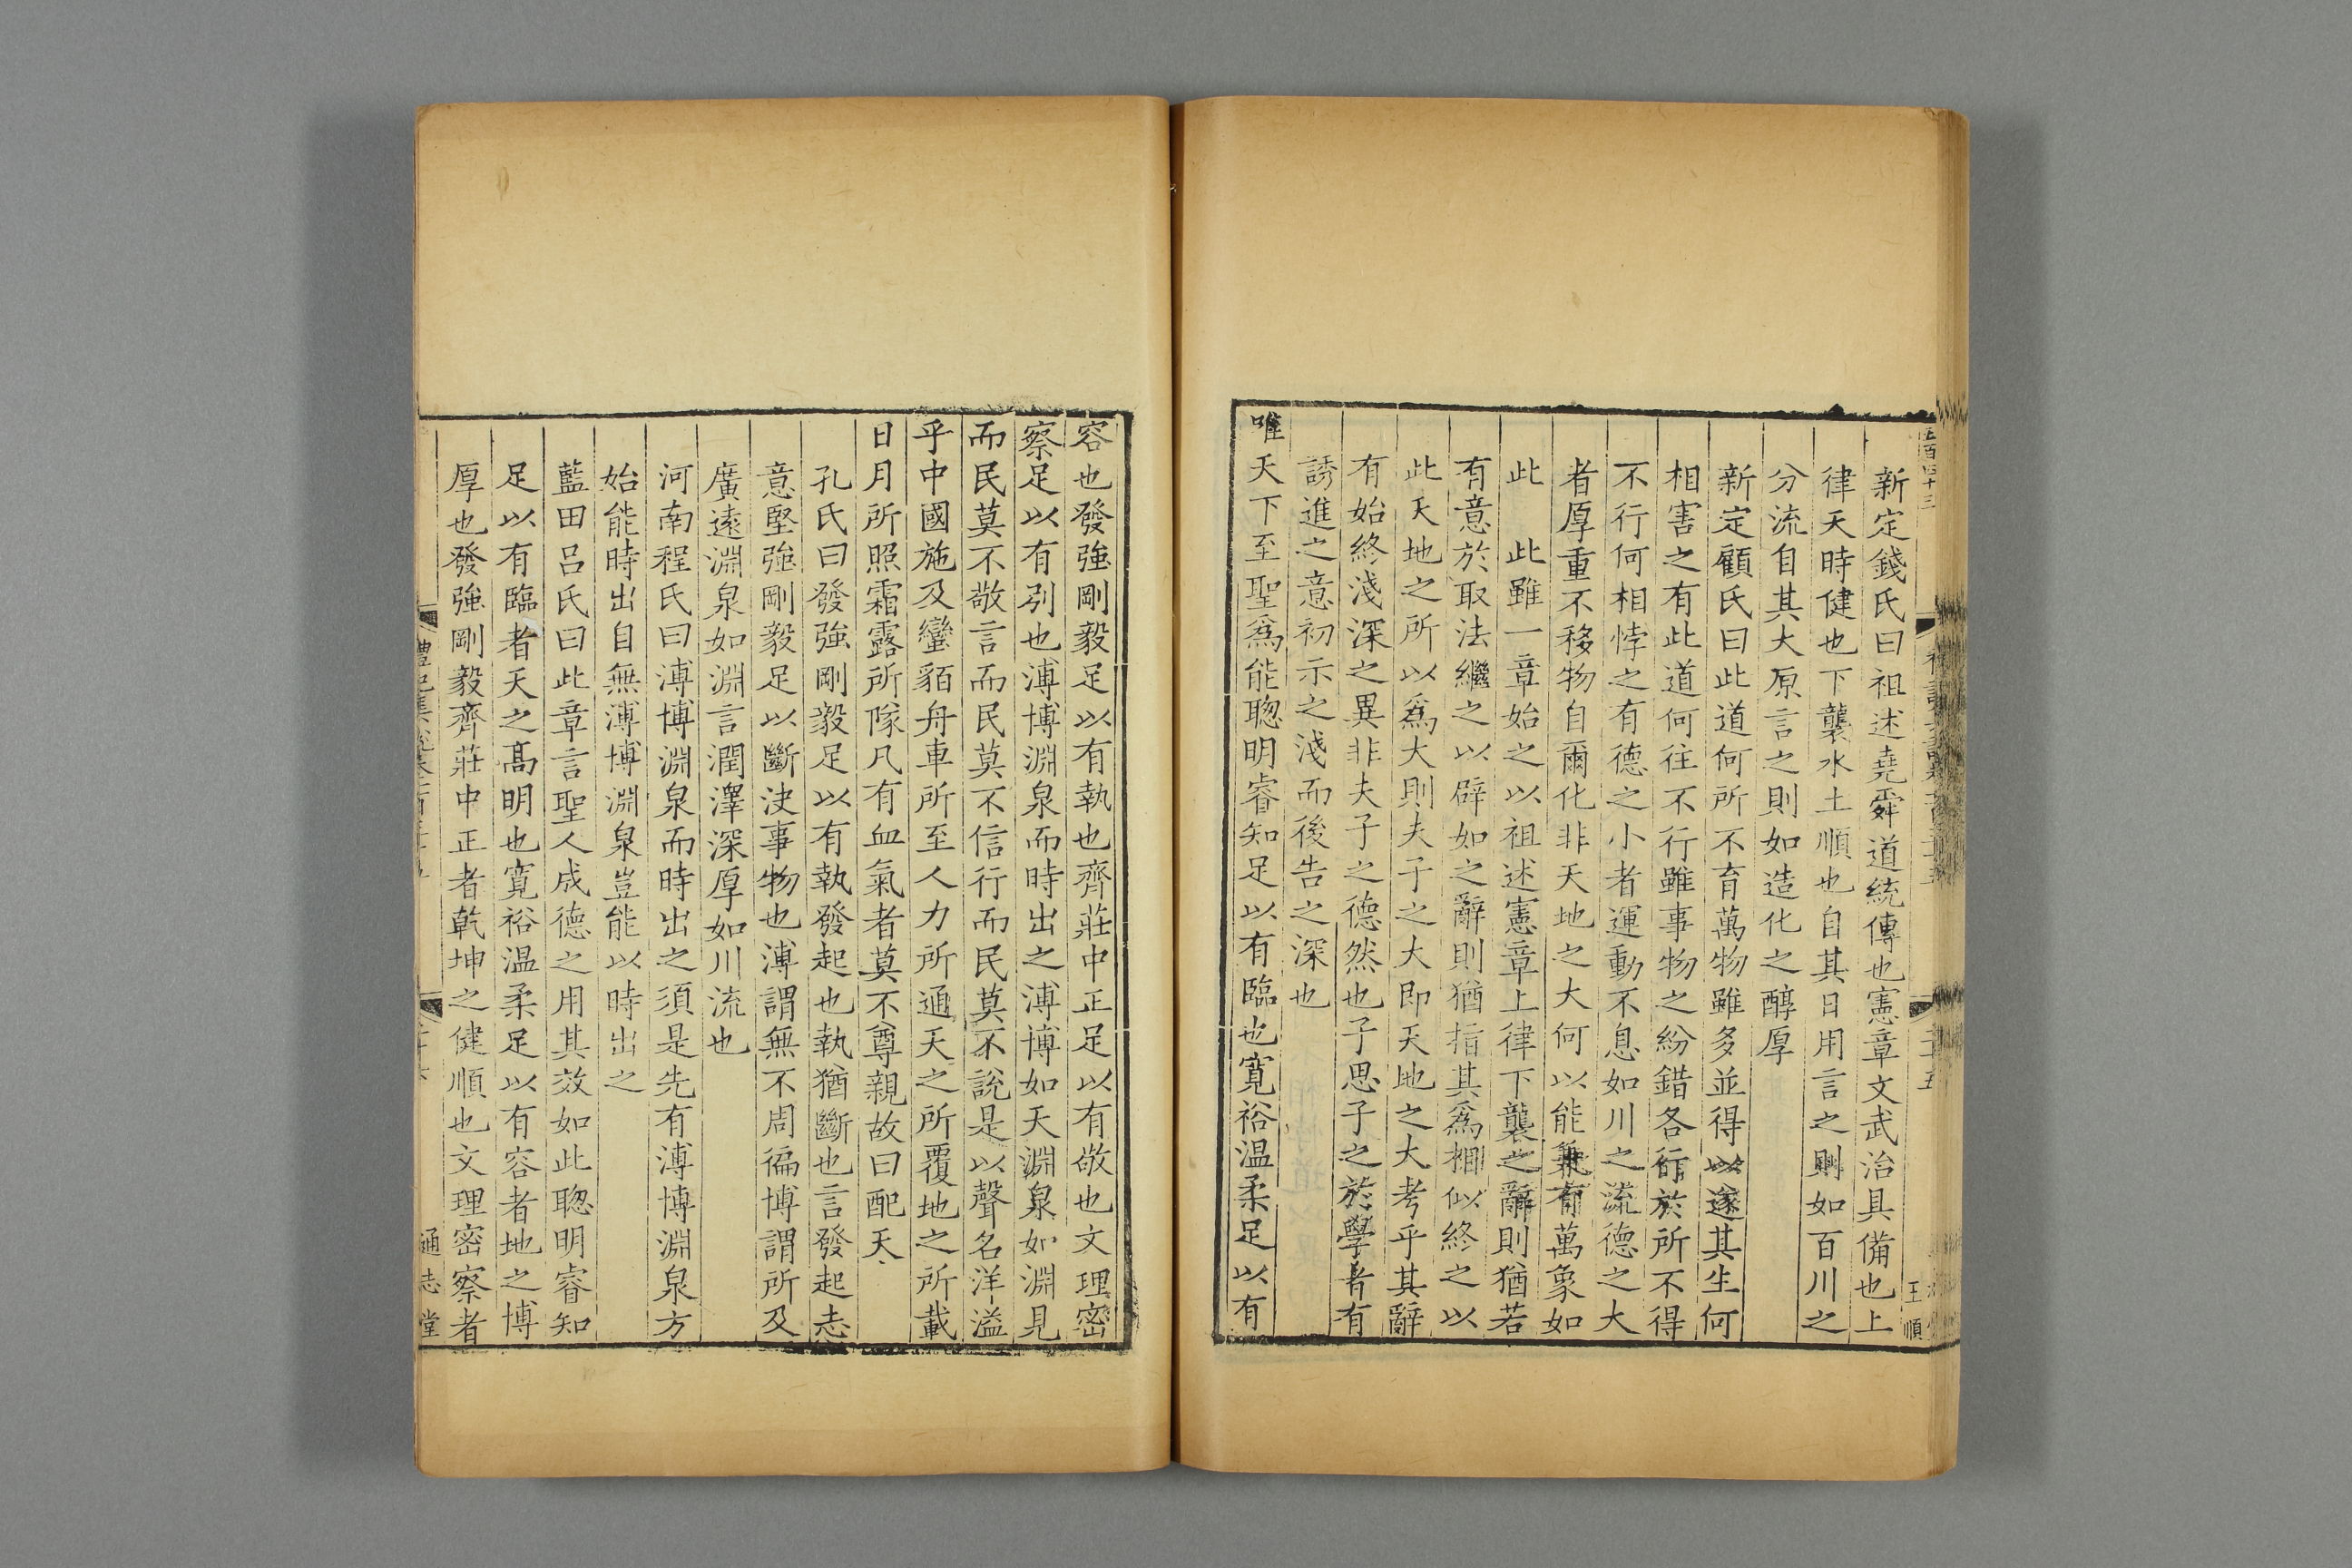 新定錢氏曰祖述堯舜道統傳也憲章文武治具備也上
律天時健也下襲水土順也自其日用言之則如百川之
分流自其大原言之則如造化之醇厚
新定顧氏曰此道何所不育萬物雖多並得以遂其生何
相害之有此道何往不行雖事物之紛錯各行於所不得
不行何相悖之有德之小者運動不息如川之流德之大
者厚重不移物自爾化非天地之大何以能兼有萬象如
此 此雖一章始之以祖述憲章上律下襲之辭則猶若
有意於取法繼之以辟如之辭則猶指其爲相似終之以
此天地之所以爲大則夫子之大即天地之大考乎其辭
有始終淺深之異非夫子之德然也子思子之於學者有
誘進之意初示之淺而後告之深也
唯天下至聖爲能聦明睿知足以有臨也寛裕温柔足以有
容也發強剛毅足以有執也齊莊中正足以有敬也文理密
察足以有别也溥博淵泉而時出之溥博如天淵泉如淵見
而民莫不敬言而民莫不信行而民莫不說是以聲名洋溢
乎中國施及蠻貊舟車所至人力所通天之所覆地之所載
日月所照霜露所隊凡有血氣者莫不尊親故曰配天
孔氏曰發強剛毅足以有執發起也執猶斷也言發起志
意堅強剛毅足以斷決事物也溥謂無不周徧博謂所及
廣遠淵泉如淵言潤澤深厚如川流也
河南程氏曰溥博淵泉而時出之須是先有溥博淵泉方
始能時出自無溥博淵泉豈能以時出之
藍田呂氏曰此章言聖人成德之用其效如此聦明睿知
足以有臨者天之髙明也寛裕温柔足以有容者地之博
厚也發強剛毅齊莊中正者乾坤之健順也文理密察者
禮記集說卷
通志堂